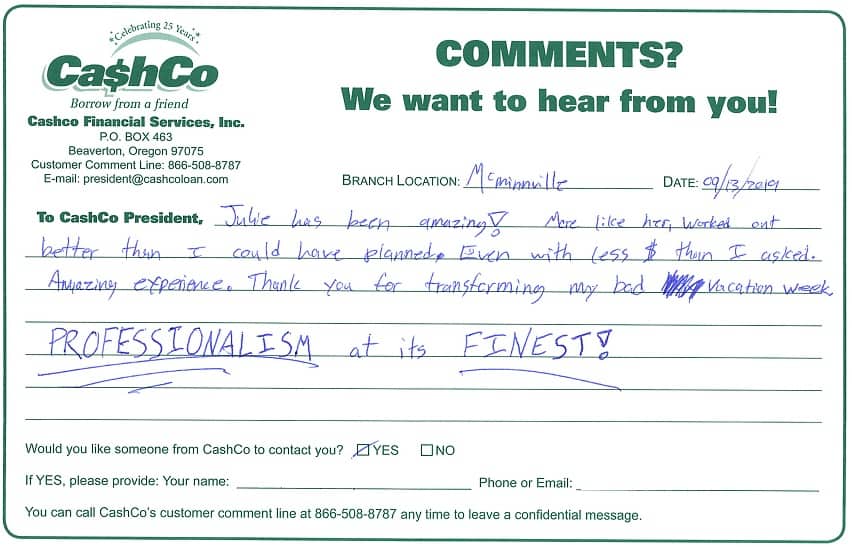 Celebrating 25 Years
Ca$hCo
Borrow from a friend
Cashco Financial Services, Inc.
P.O. BOX 463
Beaverton, Oregon 97075
Customer Comment Line: 866-508-8787
E-mail: president@cashcoloan.com
COMMENTS?
We want to hear from you!
BRANCH LOCATION: McMinnville DATE: 09/13/2019
To CashCo President, Julie has been amazing! More like her, worked out
better than I could have planned. Even with less $ than I asked.
Amazing experience. Thank you for transforming my bad vacation week.
PROFESSIONALISM at its FINEST!
Would you like someone from CashCo to contact you? ☑YES ☐NO
If YES, please provide: Your name: Phone or Email:
You can call CashCo's customer comment line at 866-508-8787 any time to leave a confidential message.